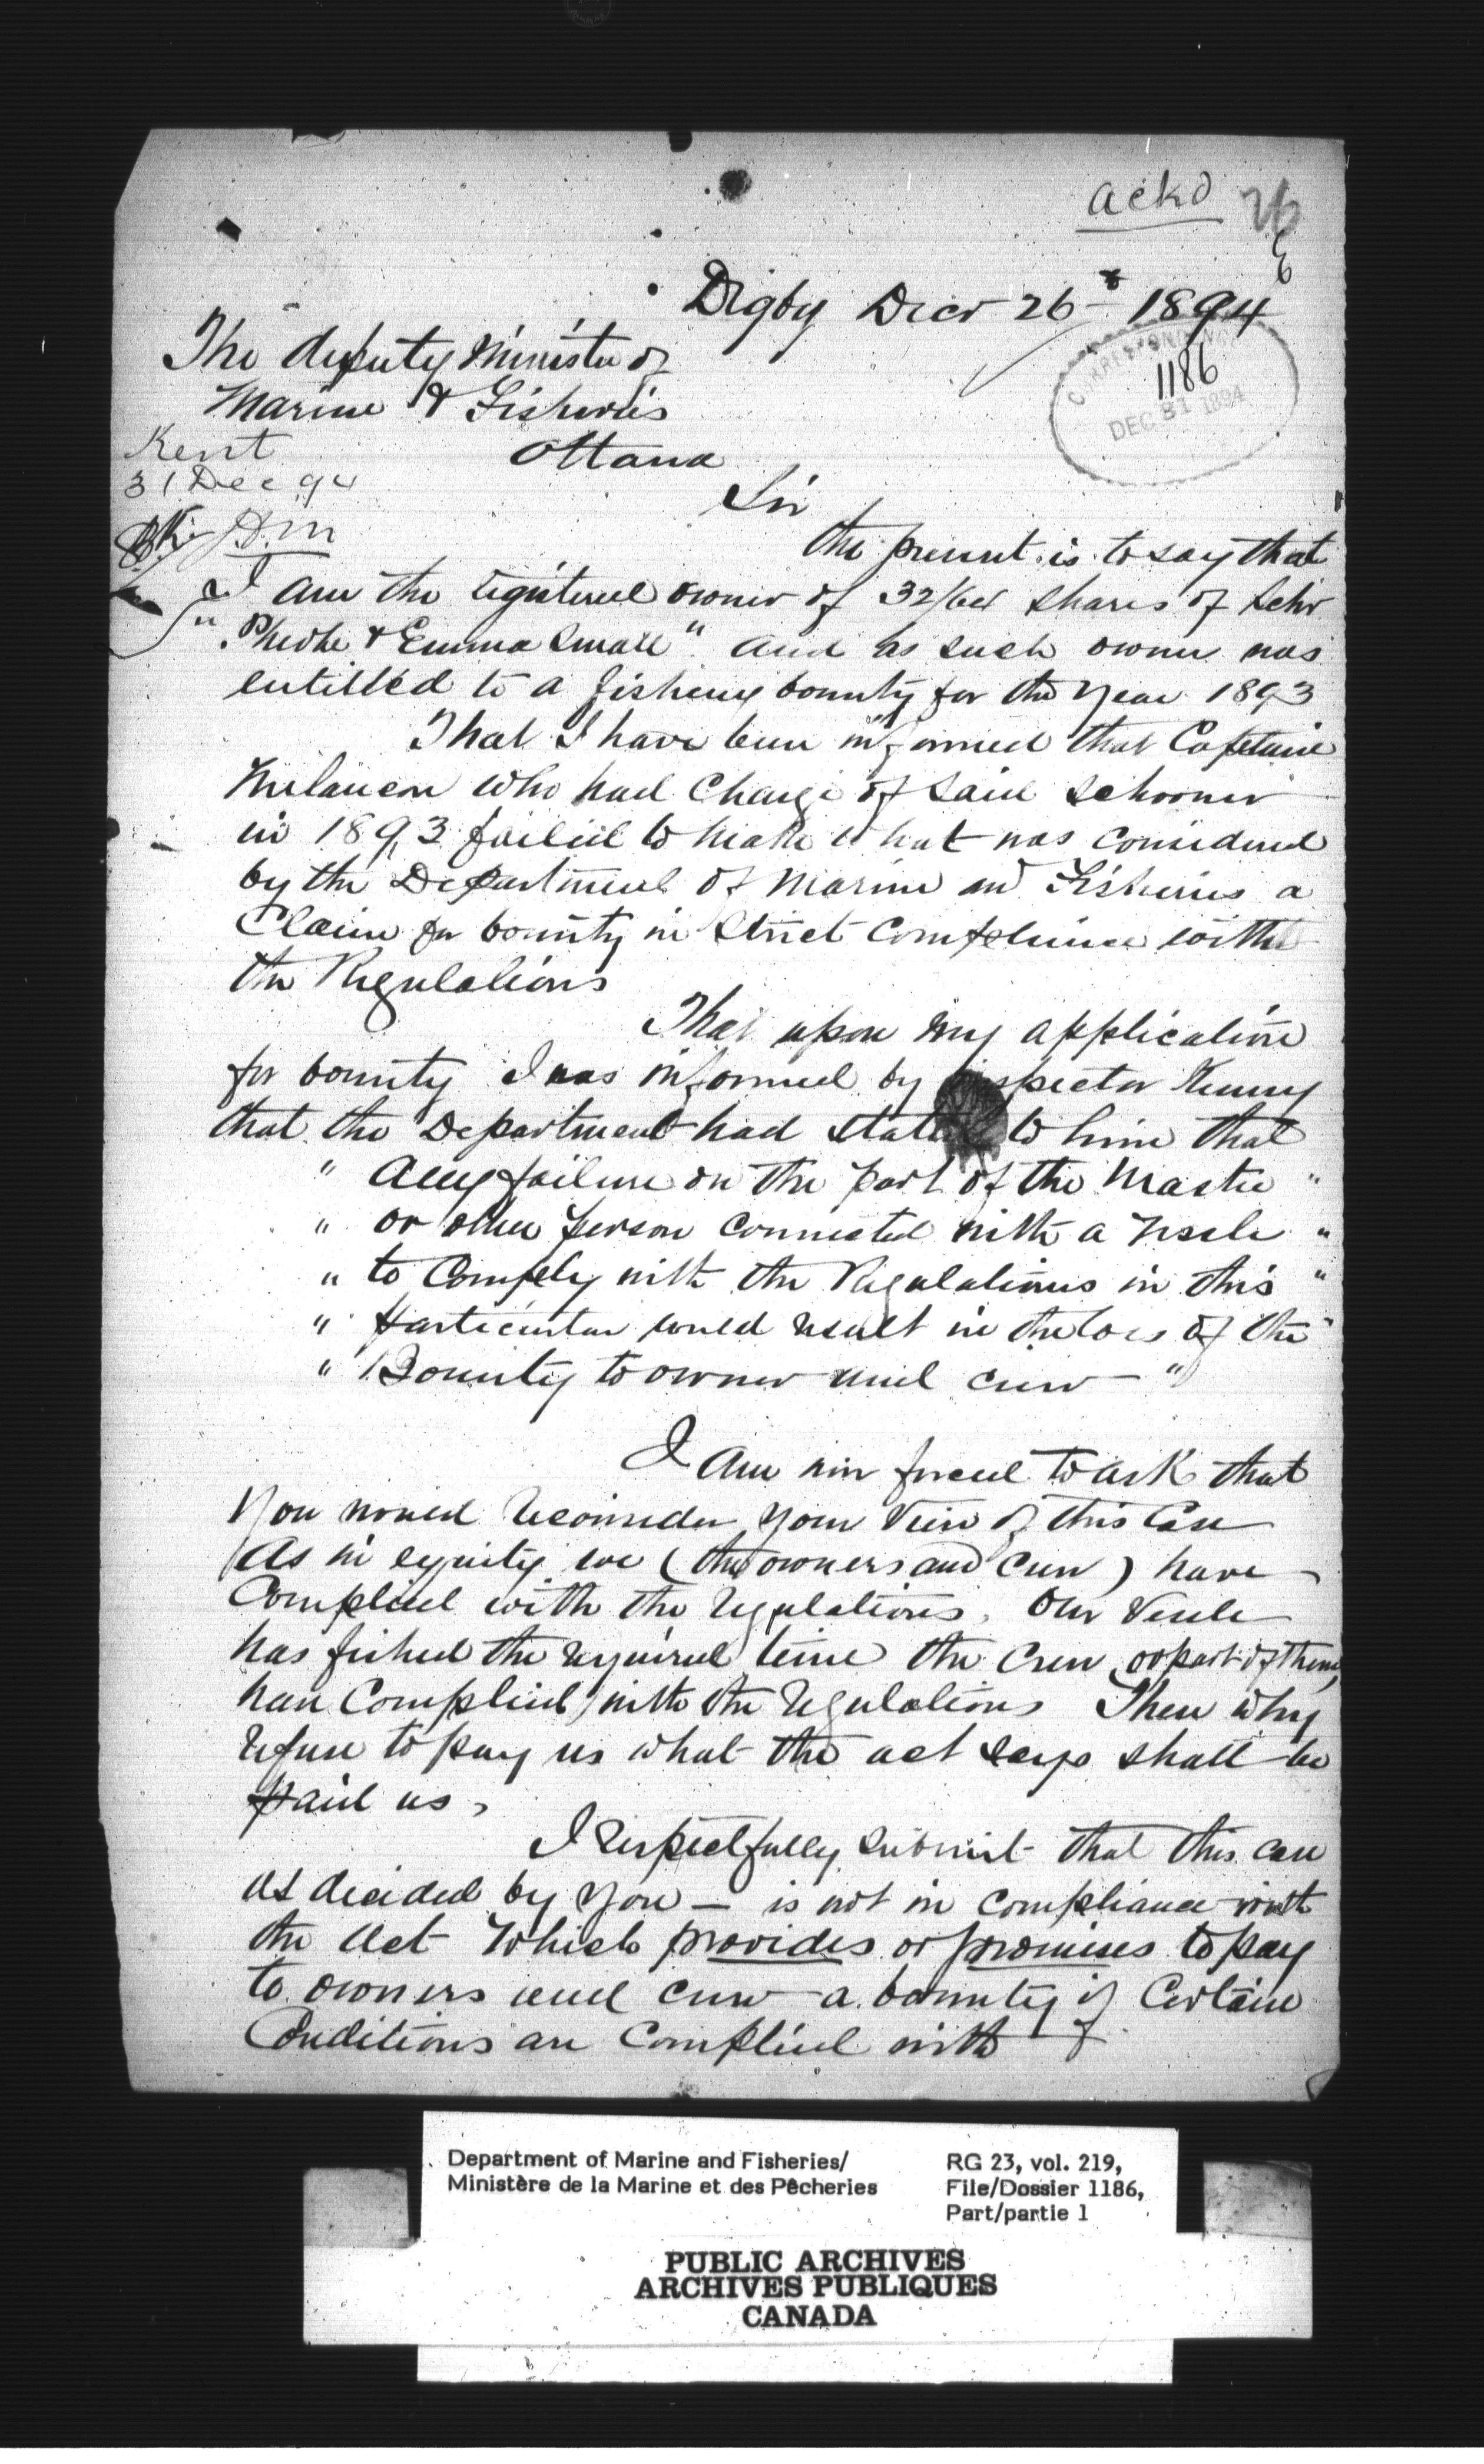 ackd 26
E
Digby Decr 26th 1894
The deputy Minister of
Marine & Fisheries
Ottawa
CORRESPONDENCE
1186
DEC 31 1894
Kent
31 Dec 94
D.M
Sir
the present is to say that
I am the registered owner of 32/64 shares of Schr
"Phebe & Emma Small" and as such owner was
entitled to a fishing bounty for the year 1893
That I have been informed that Captain
Melancon who had Charge of said schooner
in 1893 failed to make what was considered
by the Department of Marine and Fisheries a
Claim for bounty in Strict Compliance with
the Regulations
That upon my application
for bounty I was informed by Inspector Kinney
that the Department had stated to him that
" Any failure on the part of the Master "
" or other person connected with a vessele "
" to Comply with the Regulations in this "
" particular would result in the loss of the "
" Bounty to owner and crew — "
I am now forced to ask that
you would reconsider your view of this Case
As in equity we (the owners and crew) have
Complied with the regulations. Our vessele
has fished the required time the crew, or part of them,
have Complied with the regulations Then why
refuse to pay us what the act says shall be
paid us,
I respectfully submit that this case
as decided by you — is not in compliance with
the Act which provides or promises to pay
to owners and crew a bounty if Certain
Conditions are Complied with
Department of Marine and Fisheries/
Ministère de la Marine et des Pêcheries
RG 23, vol. 219,
File/Dossier 1186,
Part/partie 1
PUBLIC ARCHIVES
ARCHIVES PUBLIQUES
CANADA